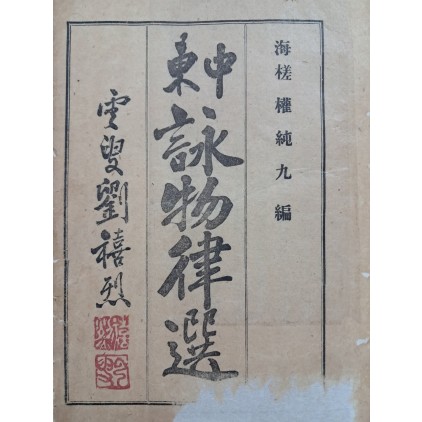 海槎權純九編
中東詠物律選
雲叟劉禧烈